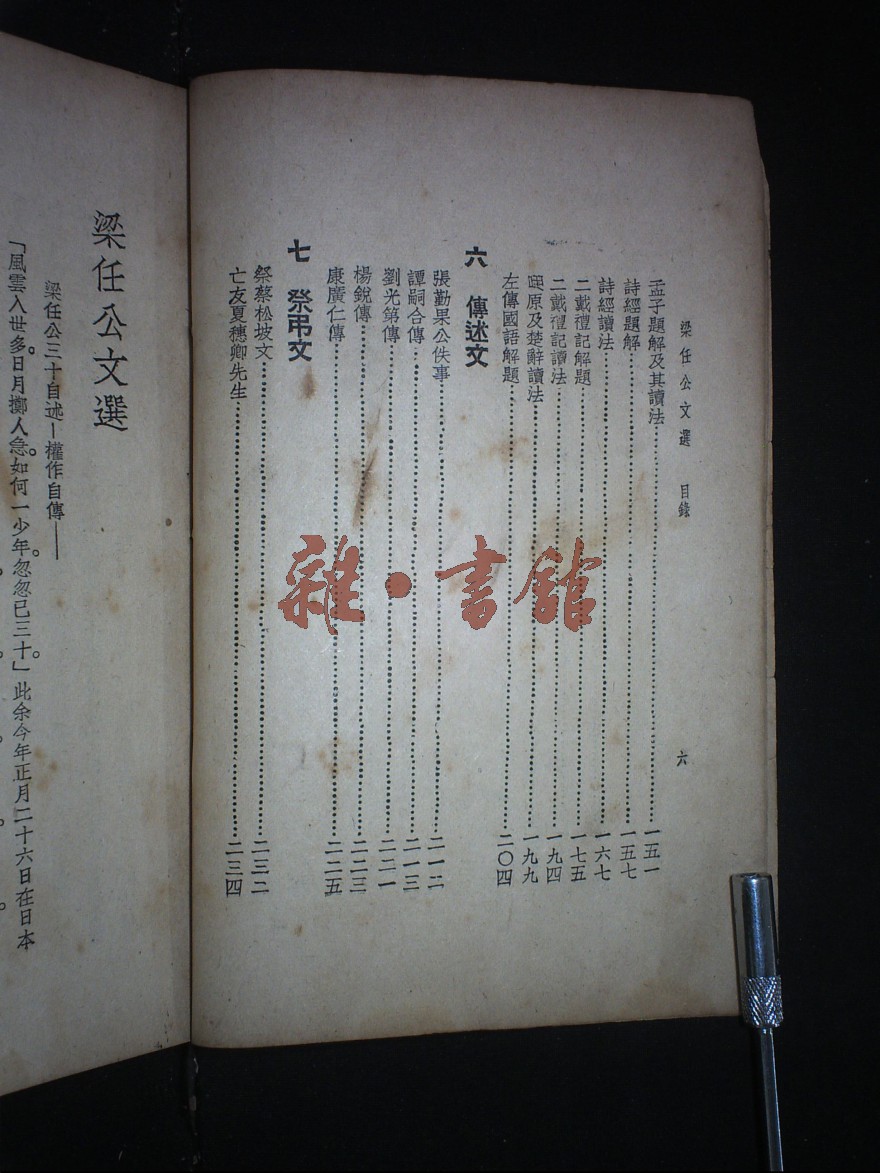 梁任公文選 目錄 六
孟子題解及其讀法 一五一
詩經題解 一五七
詩經讀法 一六七
二戴禮記解題 一七五
二戴禮記讀法 一九四
屈原及楚辭讀法 一九九
左傳國語解題 二〇四
六 傳述文
張勤果公佚事 二一二
譚嗣合傳 二一三
劉光第傳 二二一
楊銳傳 二二三
康廣仁傳 二二五
七 祭弔文
祭蔡松坡文 二三二
亡友夏穗卿先生 二三四
梁任公文選
梁任公三十自述—權作自傳——
「風雲入世多。日月擲人急。如何一少年。忽忽已三十。」此余今年正月二十六日在日本
雜·書館